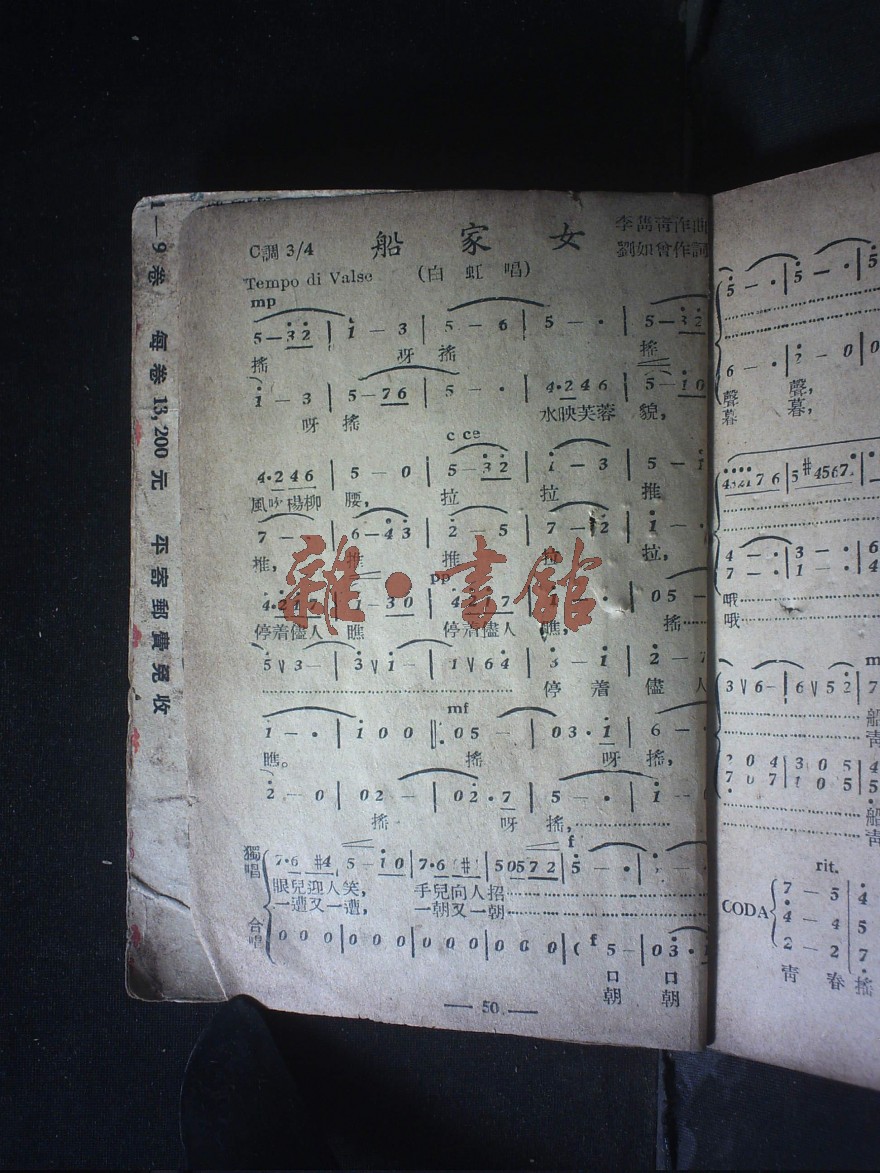 1—9卷 每卷13,200元 平寄郵費免收
C調 3/4 船家女 李雋青作曲
劉如曾作詞
Tempo di Valse (白虹唱)
mp
5—3 2 | 1 — 3 | 5 — 6 | 5 — · | 5—3 2
搖 呀 搖 搖
1 — 3 | 5—7 6 | 5 — · | 4·2 4 6 | 5—1 0
呀 搖 水映芙蓉 貌,
4·2 4 6 | 5 — 0 | 5—3 2 | 1 — 3 | 5 — 1
風吹楊柳 腰, 拉 拉 推
7 — · | 6—4 3 | 2 — 5 | 7 — 2 | 1 — ·
推, 推 推 拉 拉,
雜·書館
pp
4·2 1 7 | 1—3 0 | 4·2 1 7 | 1 — · | 0 5 —
停着儘人 瞧 停着儘人 瞧, 搖
5 V 3— | 3 V 1— | 1 V 6 4 | 3 — 1 | 2 — 7
停 着 儘 人
mf
1 — · | 1 0 0 | 0 5 — | 0 3·1 | 6 —
瞧。 搖 呀 搖,
2 — 0 | 0 2 — | 0 2·7 | 5 — · | 1 —
搖 呀 搖,
f
獨唱 7·6 #4 | 5—1 0 | 7·6 #4 | 5 0 5 7 2 | 5 — ·
眼兒迎人笑, 手兒向人招
一遭又一遭, 一朝又一朝
合唱 0 0 0 | 0 0 0 | 0 0 0 | 0 0 0 | f 5 — | 0 3 · 1
口 口
朝 朝
— 50 —
5 — · | 5 — · | 5
6 — · | 2 — 0
聲 聲,
暮 暮,
7 6 | 5 #4 5 6 7
4 — · | 3 — · | 6
7 — · | 1 — · | 4
哦
哦
3 V 6— | 6 V 5 2 | 7
船
青
2 0 4 | 3 0 5 | 4
7 0 7 | 1 0 5 | 5
船
青
rit.
CODA
7 — 5 | 4
4 — 4 | 5
2 — 2 | 7
青 春 搖